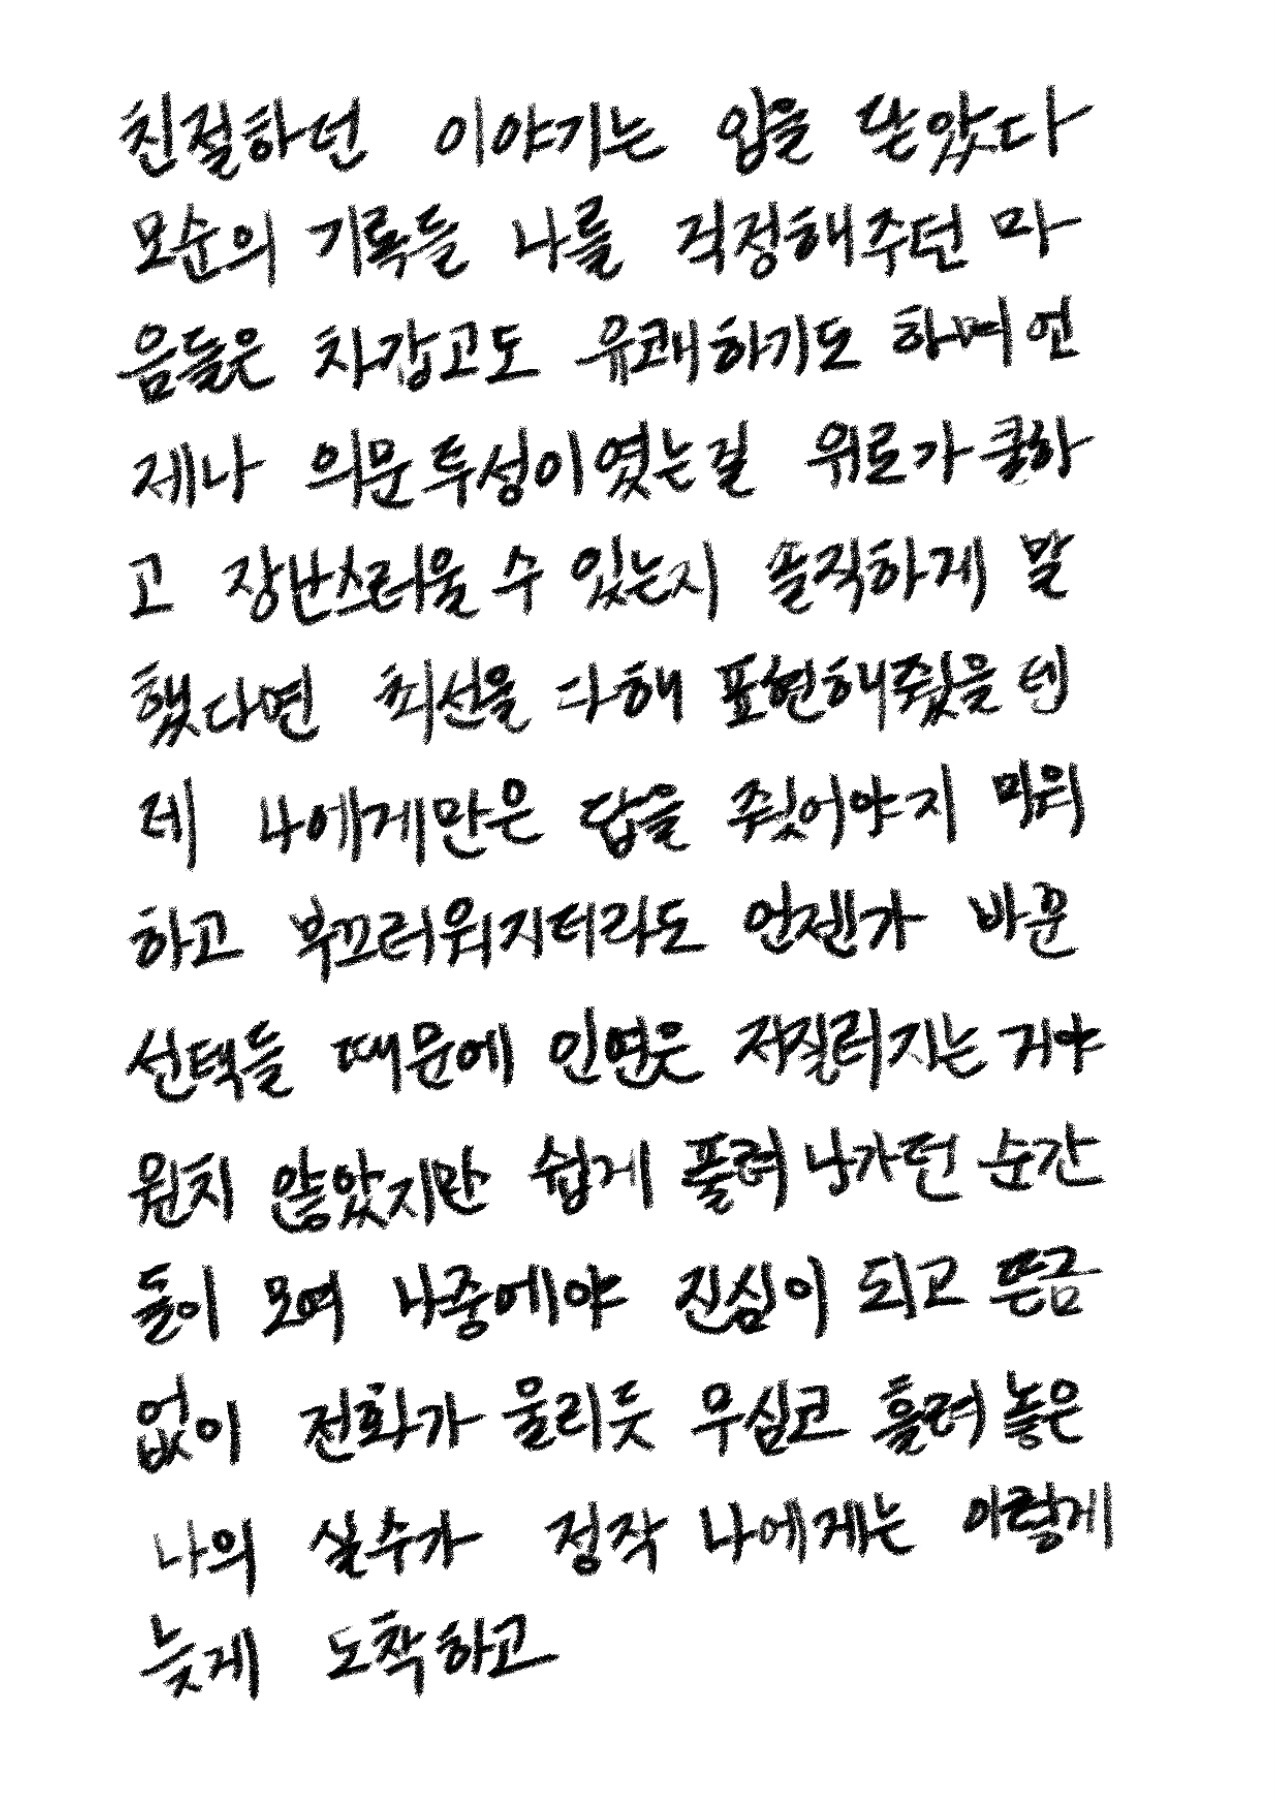 친절하던 이야기는 입을 닫았다
모순의 기록들 나를 걱정해주던 마
음들은 차갑고도 유쾌하기도 하며 언
제나 의문투성이였는걸 위로가 쿨하
고 장난스러울 수 있는지 솔직하게 말
했다면 최선을 다해 표현해줬을 텐
데 나에게만은 답을 줬어야지 미워
하고 부끄러워지더라도 언젠가 바뀐
선택들 때문에 인연은 저질러지는 거야
원치 않았지만 쉽게 풀려 나가던 순간
들이 모여 나중에야 진심이 되고 뜬금
없이 전화가 울리듯 무심코 흘려 놓은
나의 실수가 정작 나에게는 이렇게
늦게 도착하고